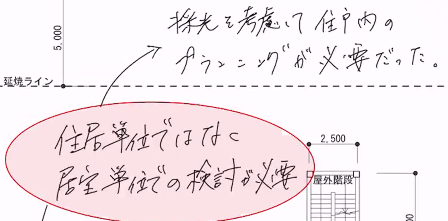 採光を考慮して住戸内の
プランニングが必要だった。
5,000
延焼ライン
住居単位ではなく
居室単位での検討が必要
2,500
屋外階段
00